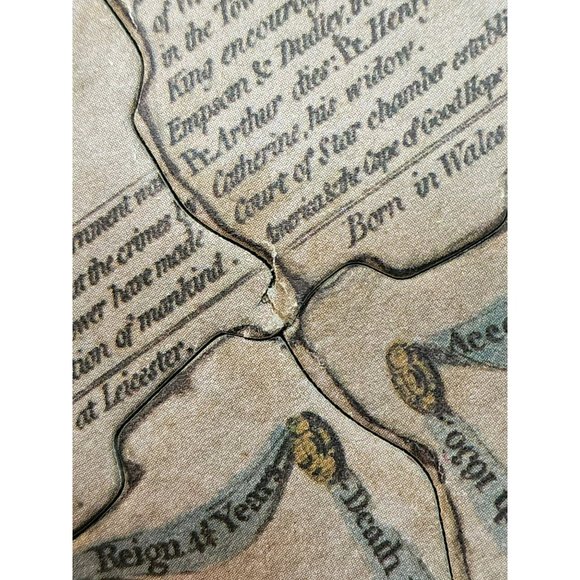 in the Tow
King encourag
Empsom & Dudley, th
Pr. Arthur dies: Pr. Henry
Catherine, his widow.
Court of Star chamber establi
America & the Cape of Good Hope
Born in Wales
rnment was
at the crimes
ower have made
tion of mankind.
at Leicester,
Acce
h 1630.
Reign Years
Death